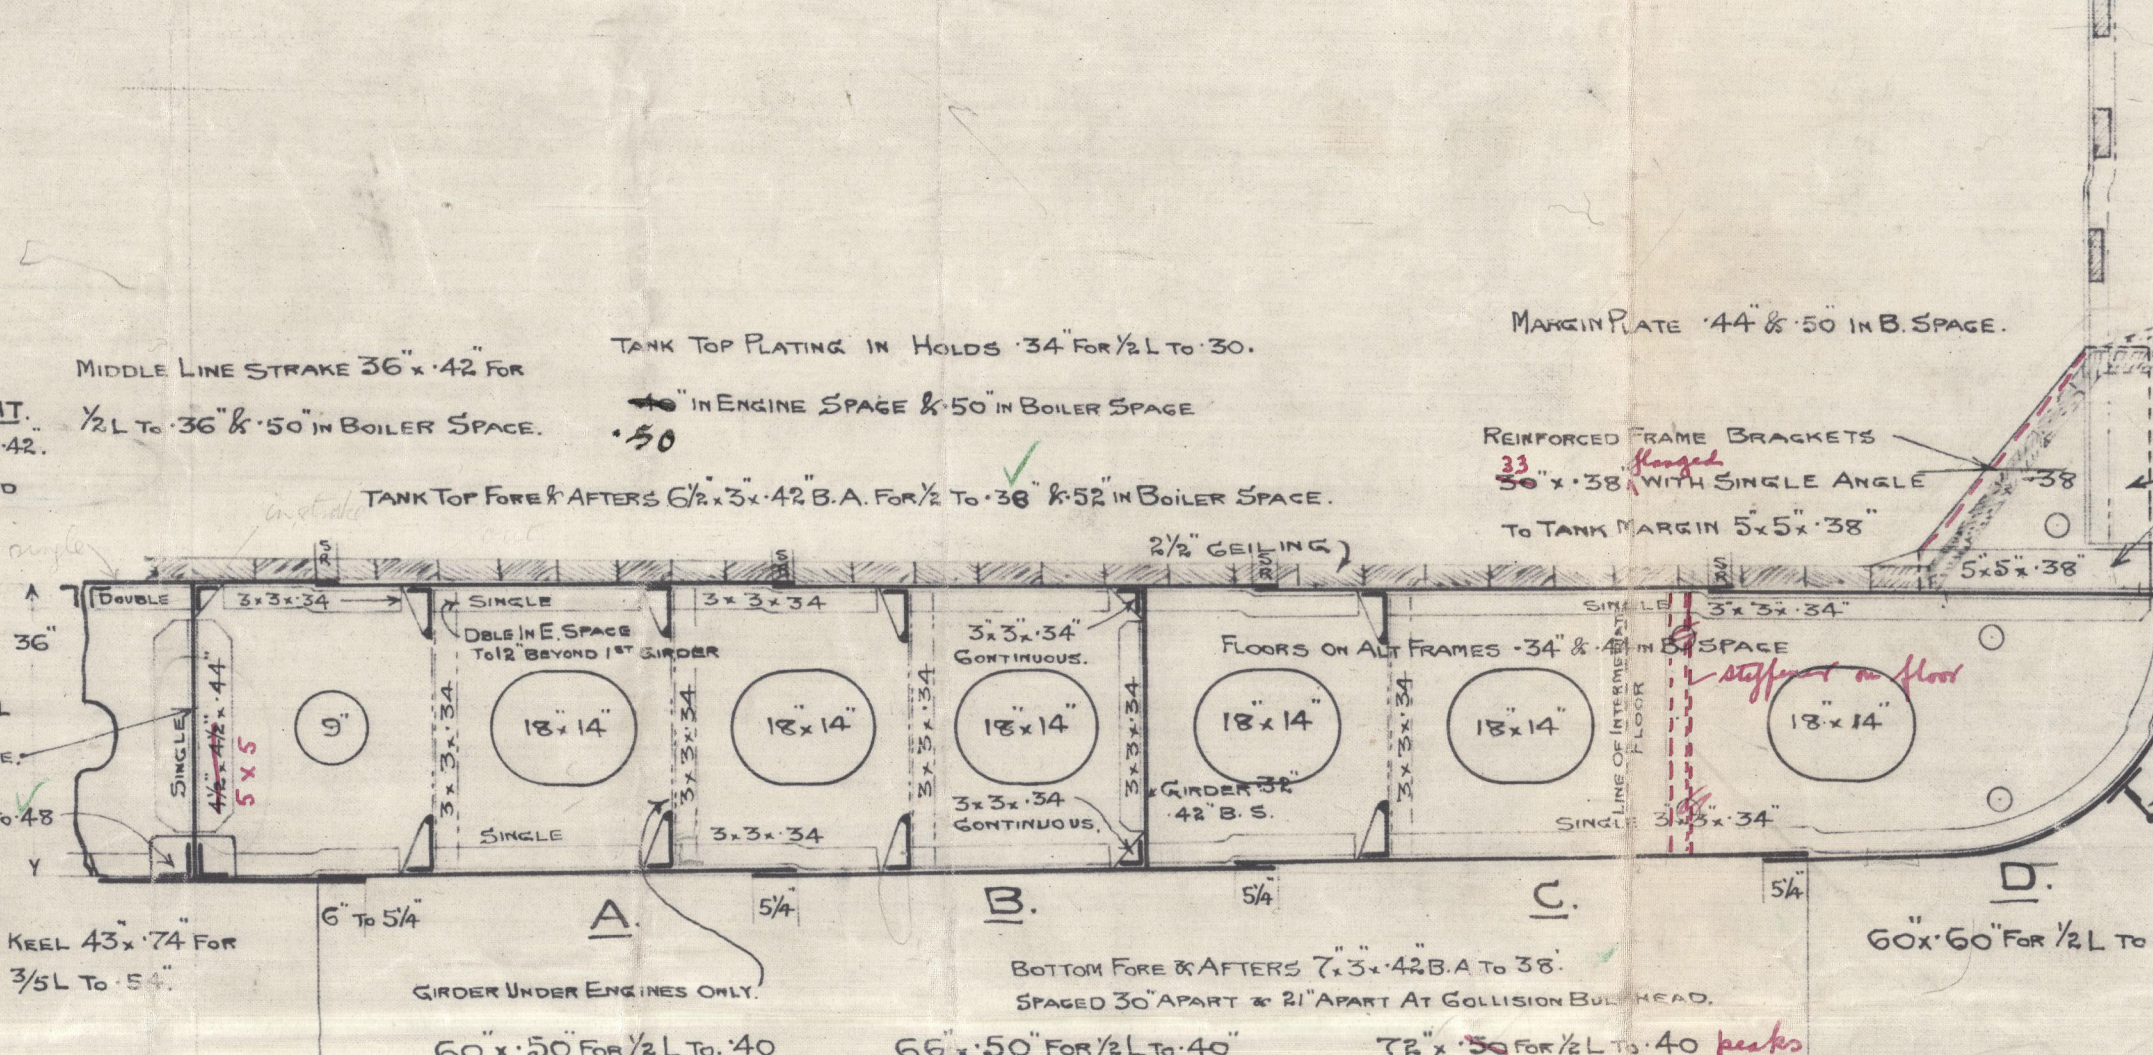 MARGIN PLATE ·44" & ·50" IN B. SPACE.
TANK TOP PLATING IN HOLDS ·34" FOR ½ L TO ·30.
·40" IN ENGINE SPACE & ·50" IN BOILER SPACE
·50
MIDDLE LINE STRAKE 36" x ·42" FOR
½ L TO ·36" & ·50" IN BOILER SPACE.
·42."
REINFORCED FRAME BRACKETS
33 flanged
30" x ·38" WITH SINGLE ANGLE
TO TANK MARGIN 5" x 5" x ·38"
·38
TANK TOP FORE & AFTERS 6½" x 3" x ·42" B.A. FOR ½ TO ·38" & ·52" IN BOILER SPACE.
2½" CEILING
SR
SR
SR
SR
5" x 5" x ·38"
DOUBLE
3 x 3 x ·34
SINGLE
3" x 3" x ·34
SINGLE
3" x 3" x ·34"
36"
DBLE IN E. SPACE
TO 12" BEYOND 1ST GIRDER
3" x 3" x ·34"
CONTINUOUS.
FLOORS ON ALT FRAMES ·34" & ·44 IN B. SPACE
stiffener on floor
SINGLE
4½" x 4½" x ·44"
5 x 5
9"
3 x 3 x ·34
18" x 14"
3 x 3 x ·34
18" x 14"
3 x 3 x ·34
18" x 14"
3 x 3 x ·34
18" x 14"
3 x 3 x ·34
18" x 14"
LINE OF INTERMEDIATE
FLOOR
18" x 14"
GIRDER ·32"
·42" B. S.
3 x 3 x ·34
CONTINUOUS.
TO ·48
SINGLE
3 x 3 x ·34
SINGLE 3" x 3" x ·34"
6" TO 5¼"
A.
5¼"
B.
5¼"
C.
5¼"
D.
KEEL 43" x ·74" FOR
3/5 L TO ·54".
GIRDER UNDER ENGINES ONLY.
BOTTOM FORE & AFTERS 7" x 3" x ·42" B.A TO ·38".
SPACED 30" APART & 21" APART AT COLLISION BULKHEAD.
60" x ·60" FOR ½ L TO
60" x ·50" FOR ½ L TO ·40
66" x ·50" FOR ½ L TO ·40"
72" x ·50 FOR ½ L TO ·40 peaks